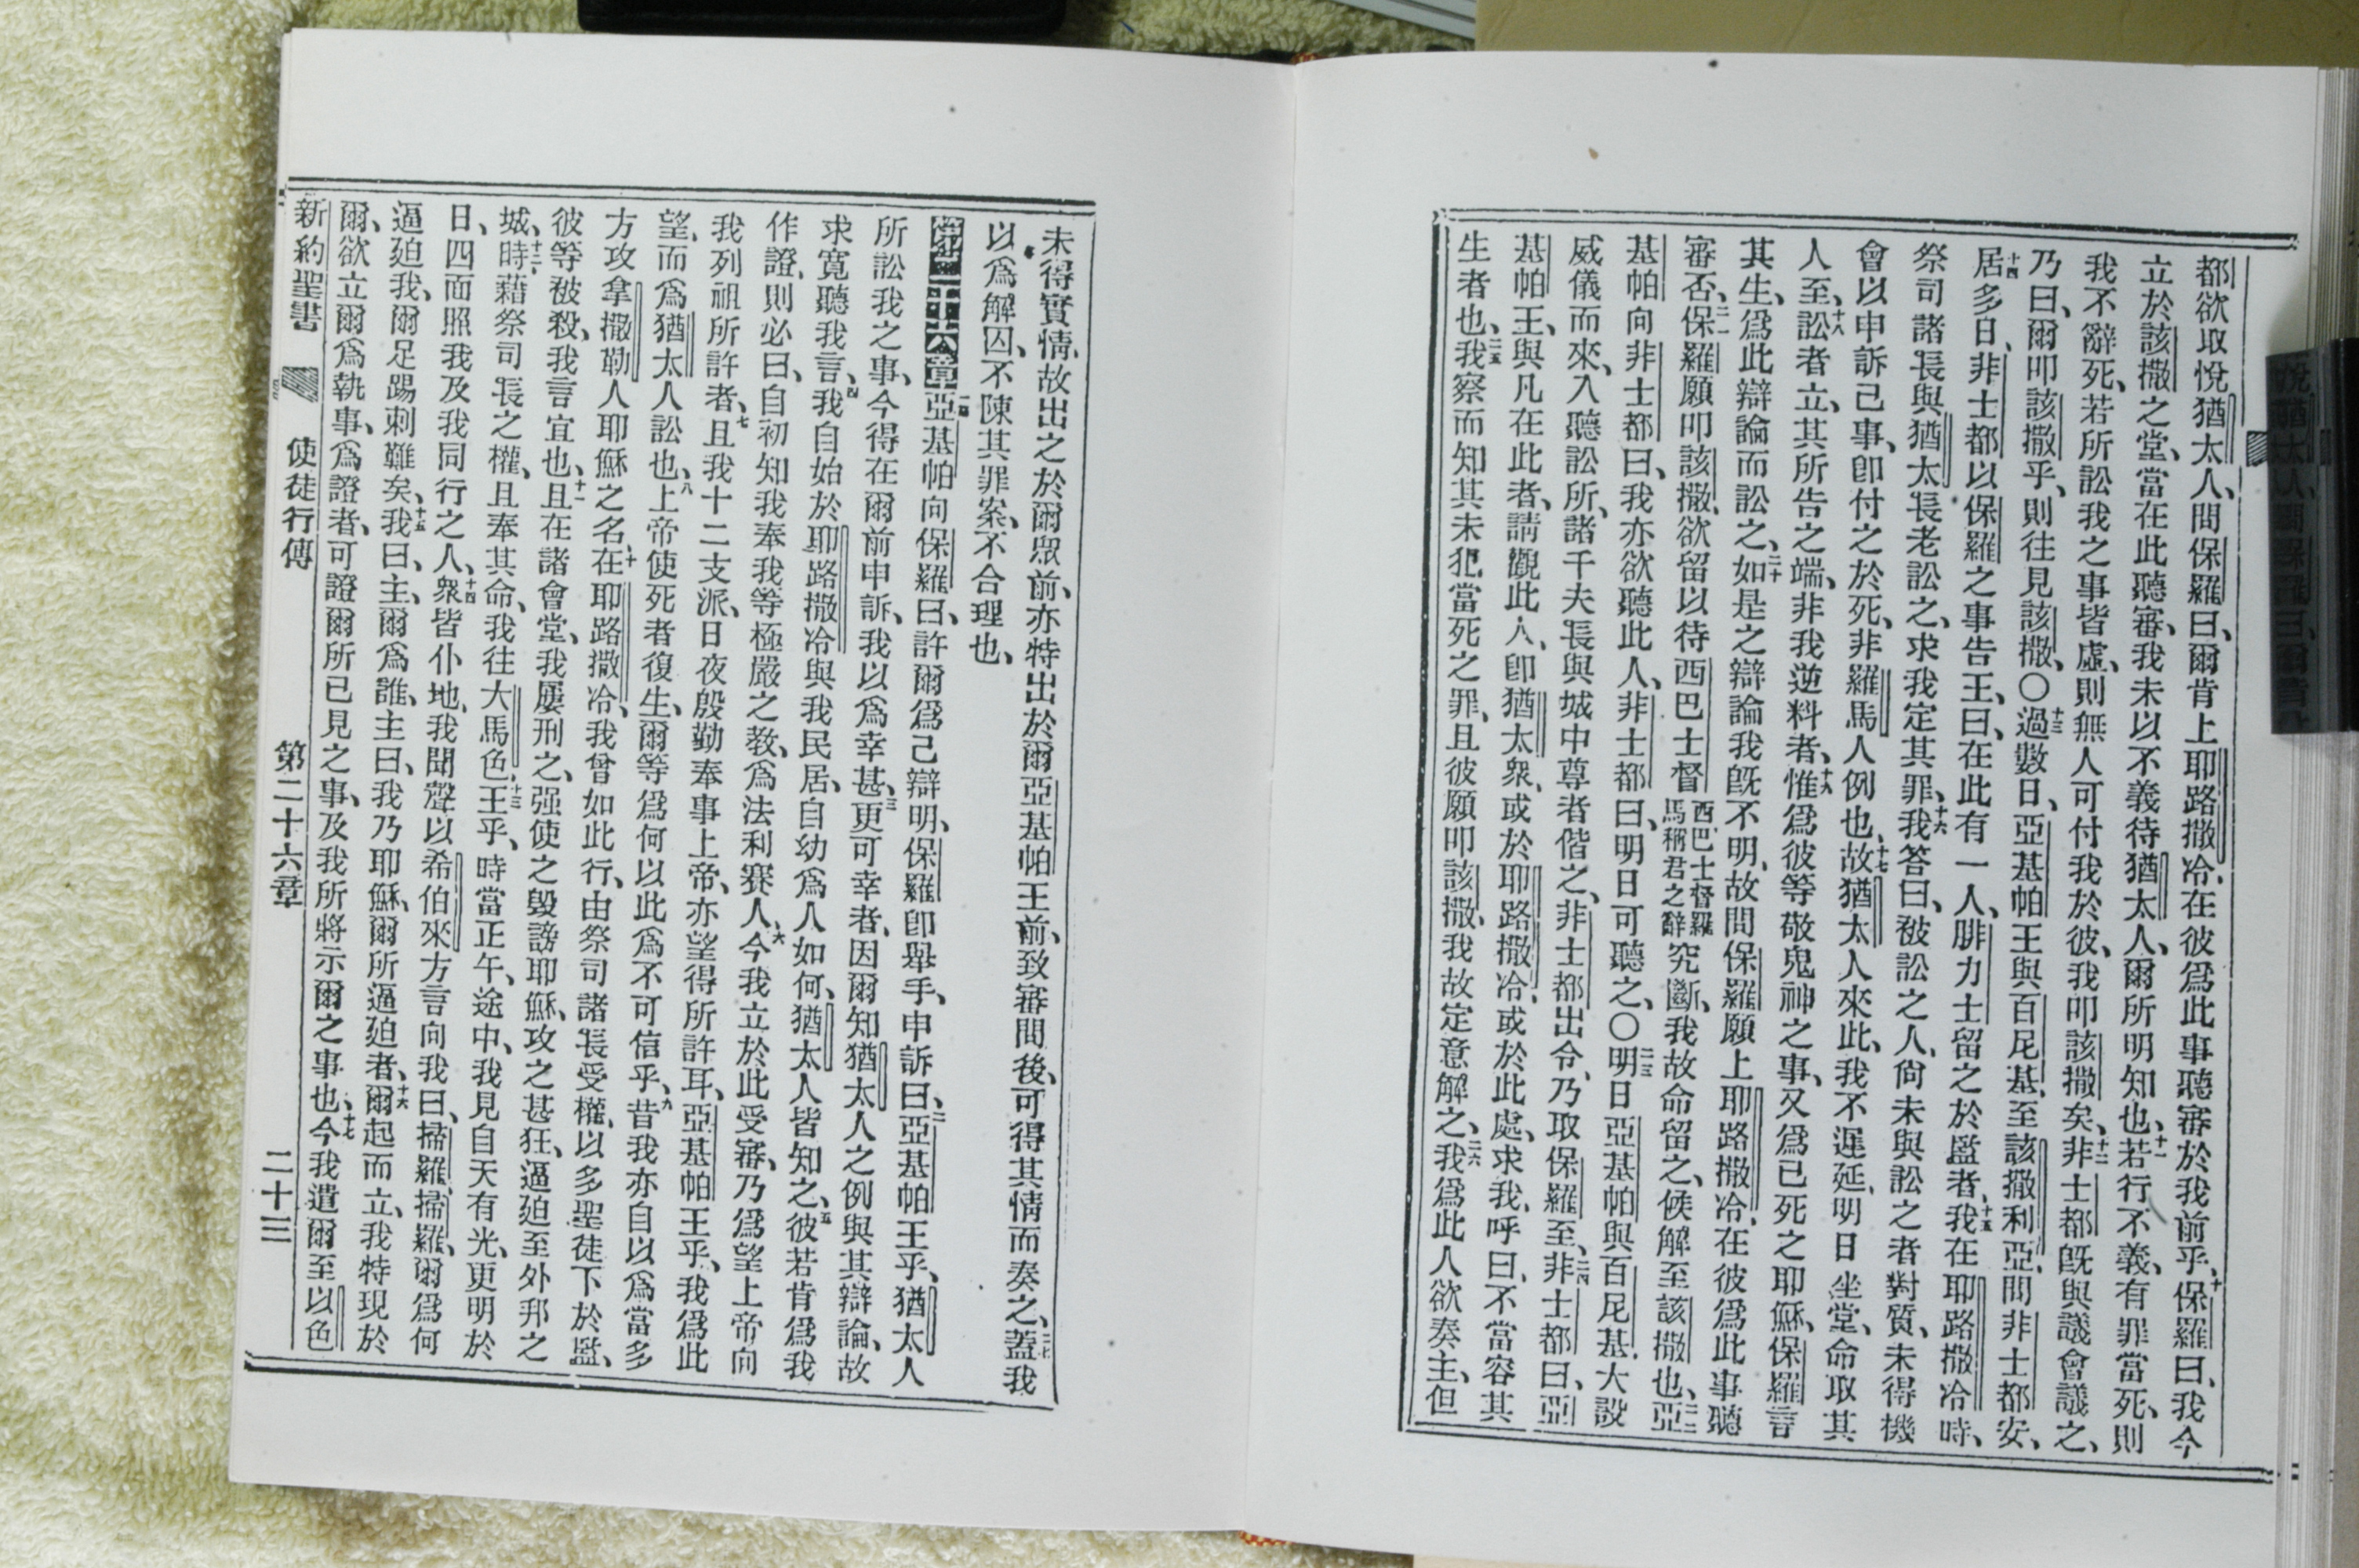 都欲取悅猶太人、問保羅曰、爾肯上耶路撒冷、在彼爲此事聽審於我前乎、十保羅曰、我今
立於該撒之堂、當在此聽審、我未以不義待猶太人、爾所明知也、十一若行不義、有罪當死、則
我不辭死、若所訟我之事皆虛、則無人可付我於彼、我叩該撒矣、十二非士都旣與議會議之、
乃曰、爾叩該撒乎、則往見該撒、〇十三過數日、亞基帕王與百尼基、至該撒利亞、問非士都安、
十四居多日、非士都以保羅之事告王、曰、在此有一人、腓力士留之於監者、十五我在耶路撒冷時、
祭司諸長與猶太長老訟之、求我定其罪、十六我答曰、被訟之人、尙未與訟之者對質、未得機
會以申訴己事、卽付之於死、非羅馬人例也、十七故猶太人來此、我不遲延、明日坐堂、命取其
人至、十八訟者立、其所告之端、非我逆料者、十九惟爲彼等敬鬼神之事、又爲已死之耶穌、保羅言
其生、爲此辯論而訟之、二十如是之辯論我旣不明、故問保羅願上耶路撒冷、在彼爲此事聽
審否、二一保羅願叩該撒、欲留以待西巴士督西巴士督羅馬稱君之辭究斷、我故命留之、候解至該撒也、二二亞
基帕向非士都曰、我亦欲聽此人、非士都曰、明日可聽之、〇二三明日亞基帕與百尼基、大設
威儀而來、入聽訟所、諸千夫長與城中尊者偕之、非士都出令、乃取保羅至、二四非士都曰、亞
基帕王、與凡在此者、請觀此人、卽猶太衆、或於耶路撒冷、或於此處、求我、呼曰、不當容其
生者也、二五我察而知其未犯當死之罪、且彼願叩該撒、我故定意解之、二六我爲此人欲奏主、但
未得實情、故出之於爾衆前、亦特出於爾亞基帕王前、致審問後、可得其情而奏之、二七蓋我
以爲解囚、不陳其罪案、不合理也、
第二十六章 一亞基帕向保羅曰、許爾爲己辯明、保羅卽舉手、申訴曰、二亞基帕王乎、猶太人
所訟我之事、今得在爾前申訴、我以爲幸甚、三更可幸者、因爾知猶太人之例與其辯論、故
求寬聽我言、四我自始於耶路撒冷與我民居、自幼爲人如何、猶太人皆知之、五彼若肯爲我
作證、則必曰、自初知我奉我等極嚴之敎、爲法利賽人、六今我立於此受審、乃爲望上帝向
我列祖所許者、七且我十二支派、日夜殷勤奉事上帝、亦望得所許耳、亞基帕王乎、我爲此
望、而爲猶太人訟也、八上帝使死者復生、爾等爲何以此爲不可信乎、九昔我亦自以爲當多
方攻拿撒勒人耶穌之名、十在耶路撒冷、我曾如此行、由祭司諸長受權、以多聖徒下於監、
彼等被殺、我言宜也、十一且在諸會堂、我屢刑之、强使之毀謗耶穌、攻之甚狂、逼廹至外邦之
城、十二時藉祭司長之權、且奉其命、我往大馬色、十三王乎、時當正午、途中、我見自天有光、更明於
日、四面照我及我同行之人、十四衆皆仆地、我聞聲以希伯來方言向我曰、掃羅、掃羅、爾爲何
逼廹我、爾足踢刺難矣、十五我曰、主、爾爲誰、主曰、我乃耶穌、爾所逼廹者、十六爾起而立、我特現於
爾、欲立爾爲執事、爲證者、可證爾所已見之事、及我所將示爾之事也、十七今我遣爾至以色
新約聖書 使徒行傳 第二十六章 二十三